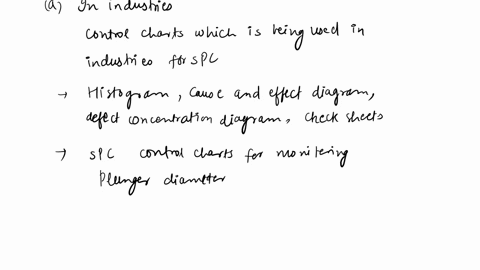 (a) In industries
Control charts which is being used in
industries for SPC
→ Histogram, Cause and effect diagram,
defect concentration diagram, Check sheets
→ SPC control charts for monitering
Plunger diameter